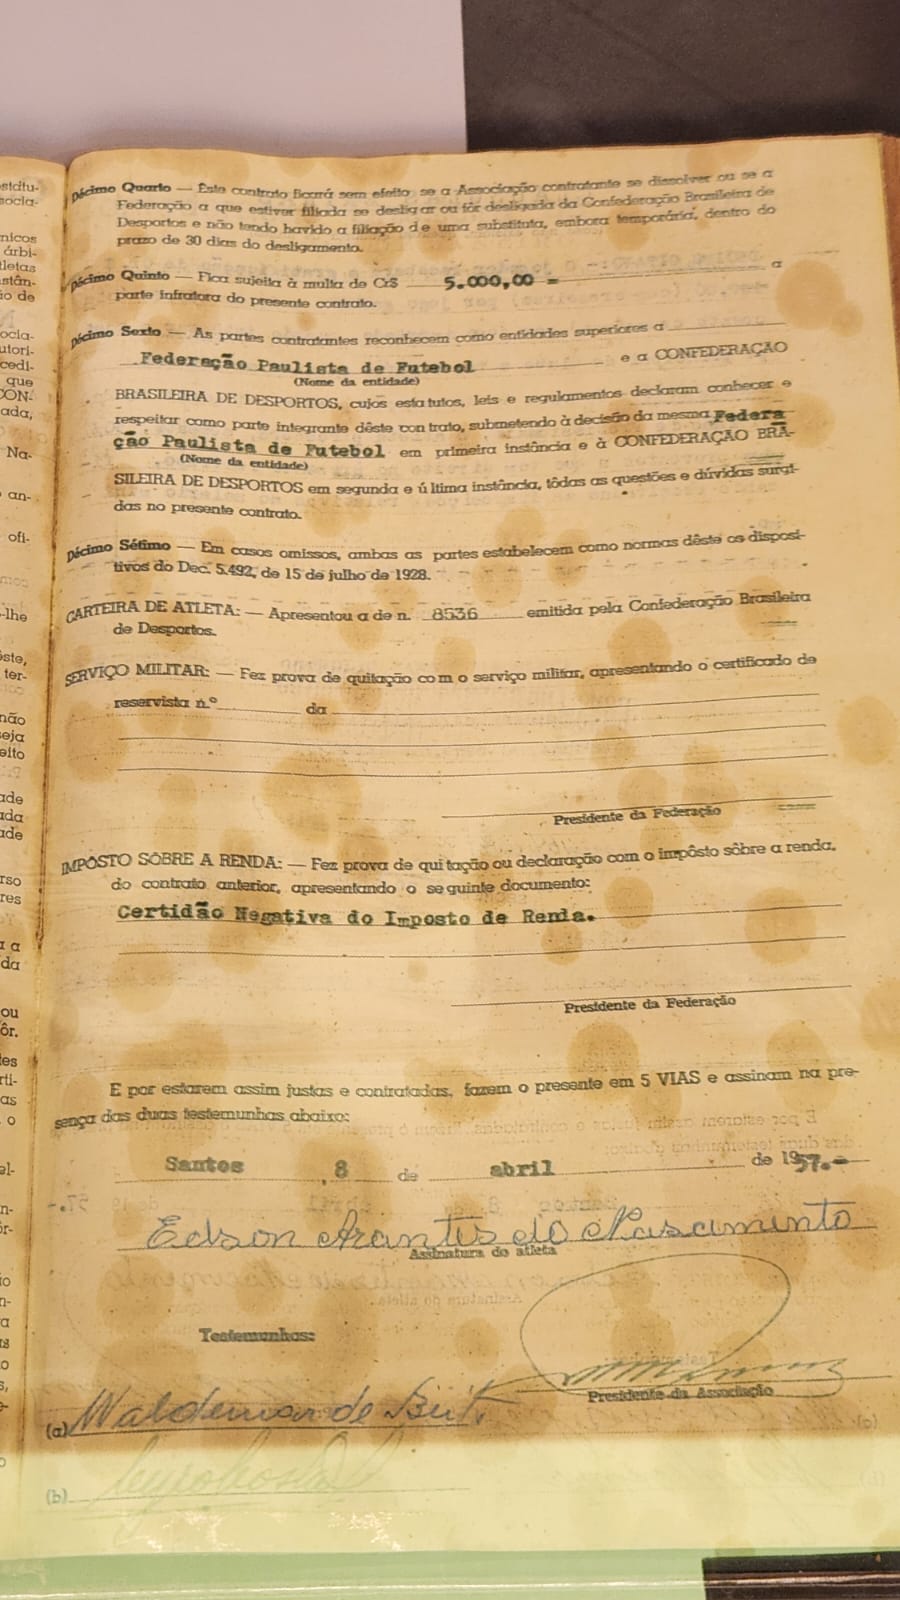 Décimo Quarto — Êste contrato ficará sem efeito, se a Associação contratante se dissolver ou se a
Federação a que estiver filiada se desligar ou fôr desligada da Confederação Brasileira de
Desportos e não tendo havido a filiação de uma substituta, embora temporária, dentro do
prazo de 30 dias do desligamento.
Décimo Quinto — Fica sujeita à multa de Cr$ 5.000,00 = a
parte infratora do presente contrato.
Décimo Sexto — As partes contratantes reconhecem como entidades superiores a
Federação Paulista de Futebol e a CONFEDERAÇÃO
(Nome da entidade)
BRASILEIRA DE DESPORTOS, cujos estatutos, leis e regulamentos declaram conhecer e
respeitar como parte integrante dêste contrato, submetendo à decisão da mesma Federa
ção Paulista de Futebol em primeira instância e à CONFEDERAÇÃO BRA-
(Nome da entidade)
SILEIRA DE DESPORTOS em segunda e última instância, tôdas as questões e dúvidas surgi-
das no presente contrato.
Décimo Sétimo — Em casos omissos, ambas as partes estabelecem como normas dêste os disposi-
tivos do Dec. 5.492, de 15 de julho de 1928.
CARTEIRA DE ATLETA: — Apresentou a de n. 8536 emitida pela Confederação Brasileira
de Desportos.
SERVIÇO MILITAR: — Fez prova de quitação com o serviço militar, apresentando o certificado de
reservista n.º da
Presidente da Federação
IMPÔSTO SÔBRE A RENDA: — Fez prova de quitação ou declaração com o impôsto sôbre a renda,
do contrato anterior, apresentando o seguinte documento:
Certidão Negativa do Imposto de Renda.
Presidente da Federação
E por estarem assim justas e contratadas, fazem o presente em 5 VIAS e assinam na pre-
sença das duas testemunhas abaixo:
Santos, 8 de abril de 1957.-
Edson Arantes do Nascimento
Assinatura do atleta
Testemunhas:
Presidente da Associação
(a) Waldemar de Brito
(b)